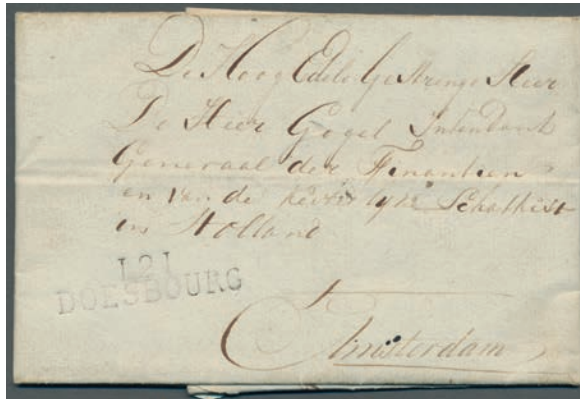 De Hoog Edele Gestrenge Heer
De Heer Gogel Intendant
Generaal der Finantien
en van de Keizerlyke Schatkist
in Holland
121
DOESBOURG
Amsterdam